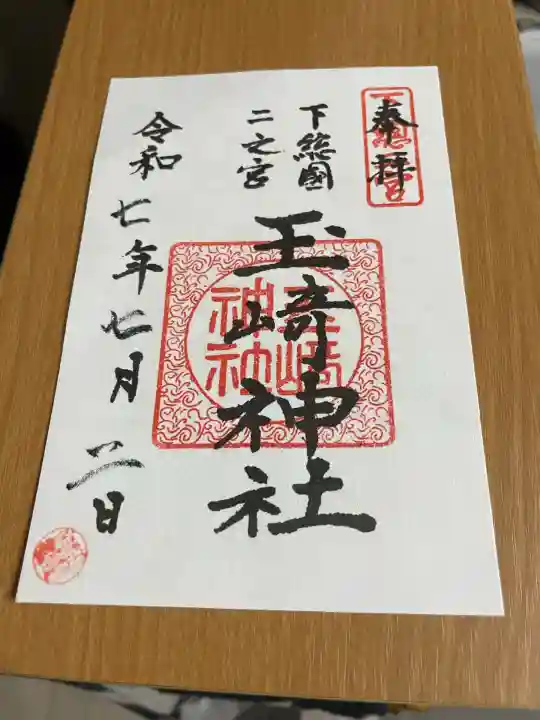 奉拝
下総國
二之宮
玉﨑神社
令和七年七月 日
玉﨑
神社